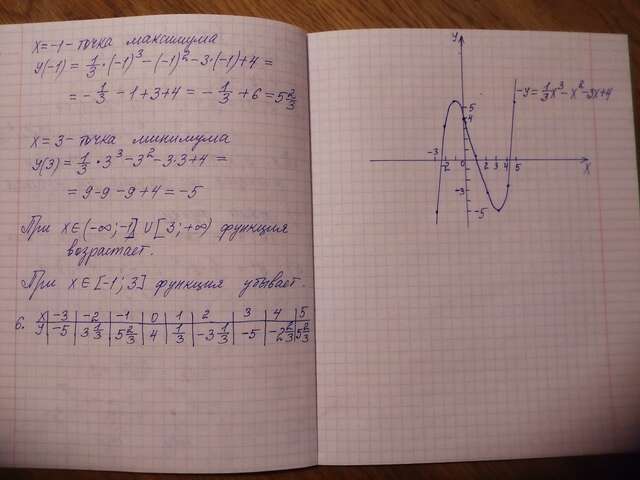 x=-1 - точка максимума
y(-1) = 1/3 · (-1)³ - (-1)² - 3·(-1) + 4 =
= - 1/3 - 1 + 3 + 4 = - 1/3 + 6 = 5 2/3
x = 3 - точка минимума
y(3) = 1/3 · 3³ - 3² - 3·3 + 4 =
= 9 - 9 - 9 + 4 = -5
При x∈(-∞;-1] ∪ [3;+∞) функция
возрастает.
При x∈[-1;3] функция убывает.
6. x -3 -2 -1 0 1 2 3 4 5
y -5 3 1/3 5 2/3 4 1/3 -3 1/3 -5 -2 2/3 5 2/3
y
- y = 1/3 x³ - x² - 3x + 4
5
4
-3 -2 0 2 3 4 5 x
-3
-5